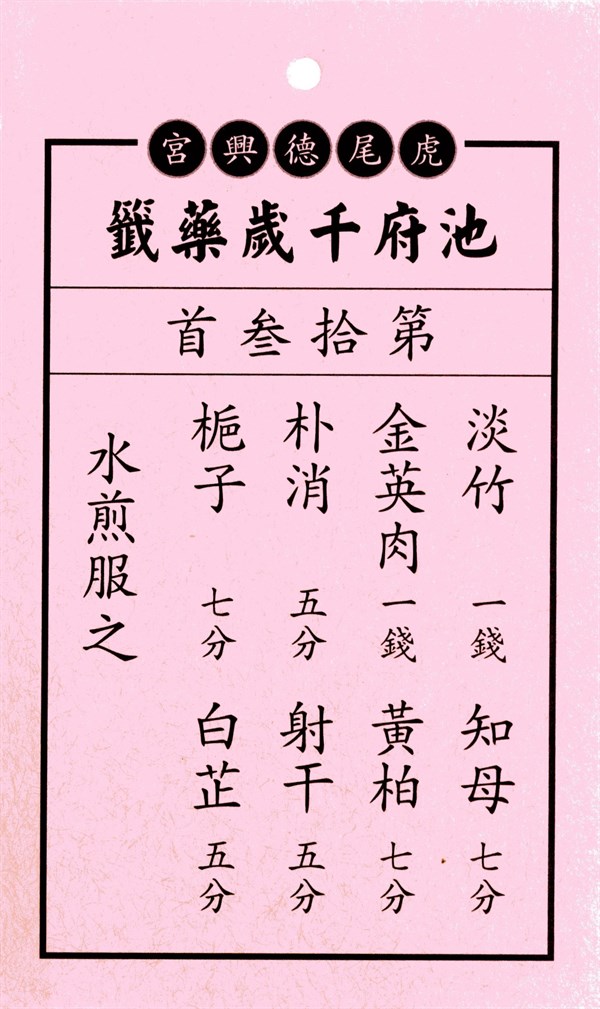 虎尾德興宮
池府千歲藥籤
第拾叁首
淡竹 一錢 知母 七分
金英肉 一錢 黃柏 七分
朴消 五分 射干 五分
梔子 七分 白芷 五分
水煎服之